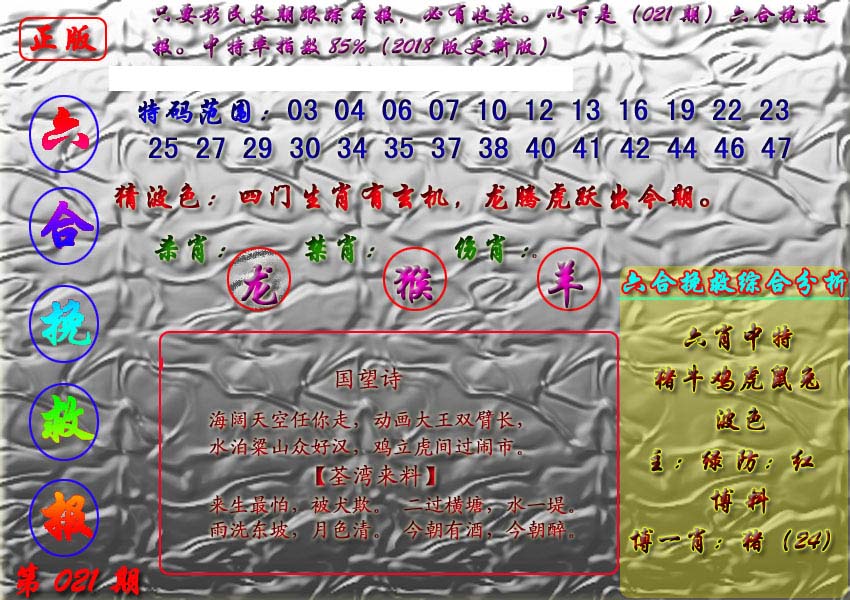 正版
只要彩民长期跟踪本报，必有收获。以下是（021期）六合挽救
报。中特率指数85%（2018版更新版）
六
合
挽
救
报
第021期
特码范围：03 04 06 07 10 12 13 16 19 22 23
25 27 29 30 34 35 37 38 40 41 42 44 46 47
猜波色：四门生肖有玄机，龙腾虎跃出今期。
杀肖： 禁肖： 伤肖：。
龙 猴 羊
国望诗
海阔天空任你走，动画大王双臂长，
水泊梁山众好汉，鸡立虎间过闹市。
【荃湾来料】
来生最怕，被犬欺。 二过横塘，水一堤。
雨洗东坡，月色清。 今朝有酒，今朝醉。
六合挽救综合分析
六肖中特
猪牛鸡虎鼠兔
波色
主：绿防：红
博料
博一肖：猪（24）